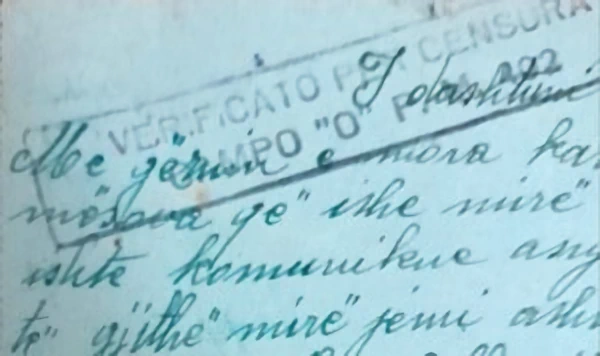 VERIFICATO PER CENSURA
CAMPO "O" P.M. 22
I dashtuni
Me gëzim e mora kar
mësova që ishe mirë
ishte komunikue ang
të gjithë mirë jemi ash